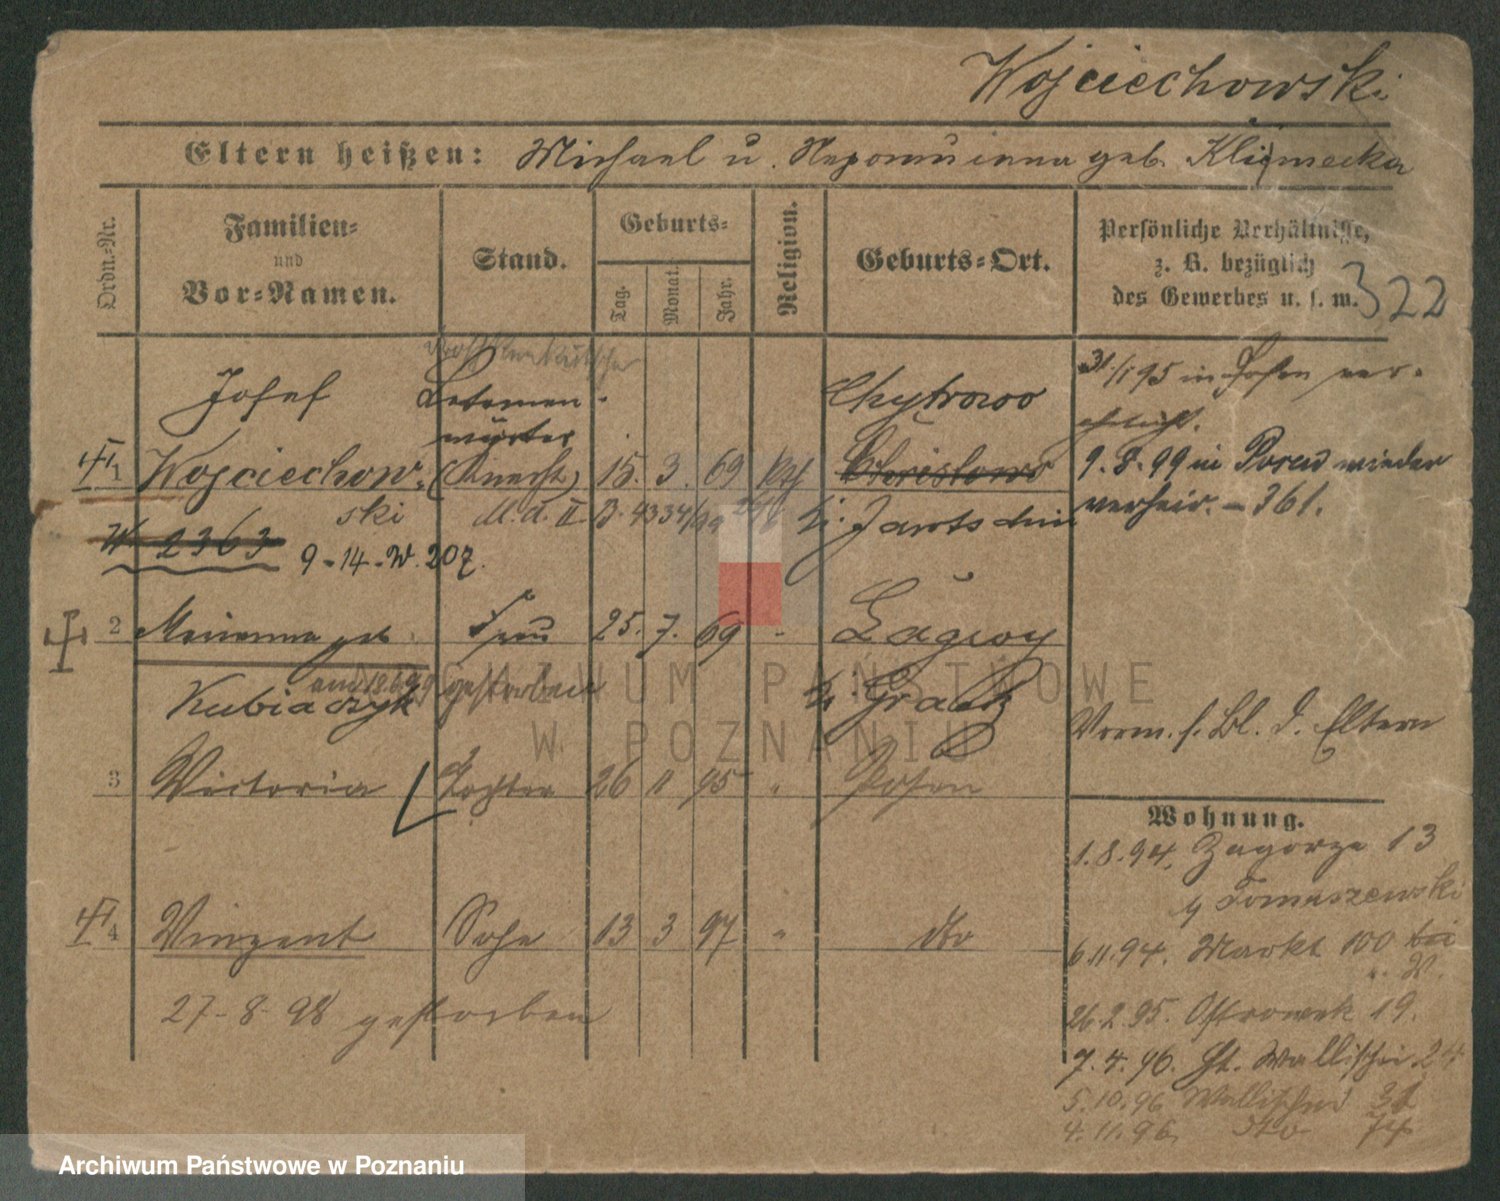 Wojciechowski
Eltern heißen: Michael u. Nepomucena geb.
Ordn.-Nr.
Familien-
und
Vor-Namen.
Stand.
Geburts-
Tag.
Monat.
Jahr.
Religion.
Geburts-Ort.
Persönliche Verhältnisse,
z. B. bezüglich
des Gewerbes u. s. w.
322
Josef
1 Wojciechow- (Knecht) 15. 3. 69 kth
ski M. A. II
W 2363
9-14-W. 207.
Chytrowo
31/1 95 in Posen ver-
ehelicht.
9. 8. 99 in Posen wieder
verheir. - 361.
2 Marianna geb. Frau 25. 7. 69 "
Kubiaczyk gestorben
Vorm. s. Bl. d. Eltern
3 Victoria Tochter 26 11 95 " Posen
4 Vinzent Sohn 13 3 97 " dto
27-8-98 gestorben
Wohnung.
1.8.94. Zagorze 13
b/ Tomaszewski
6.11.94. Markt 100 bei
26.2.95. Ostrowek 19.
7.4.96. Wallischei 24
5.10.96 Wallischei 31
4.11.96. dto 74
ARCHIWUM PAŃSTWOWE
W POZNANIU
Archiwum Państwowe w Poznaniu